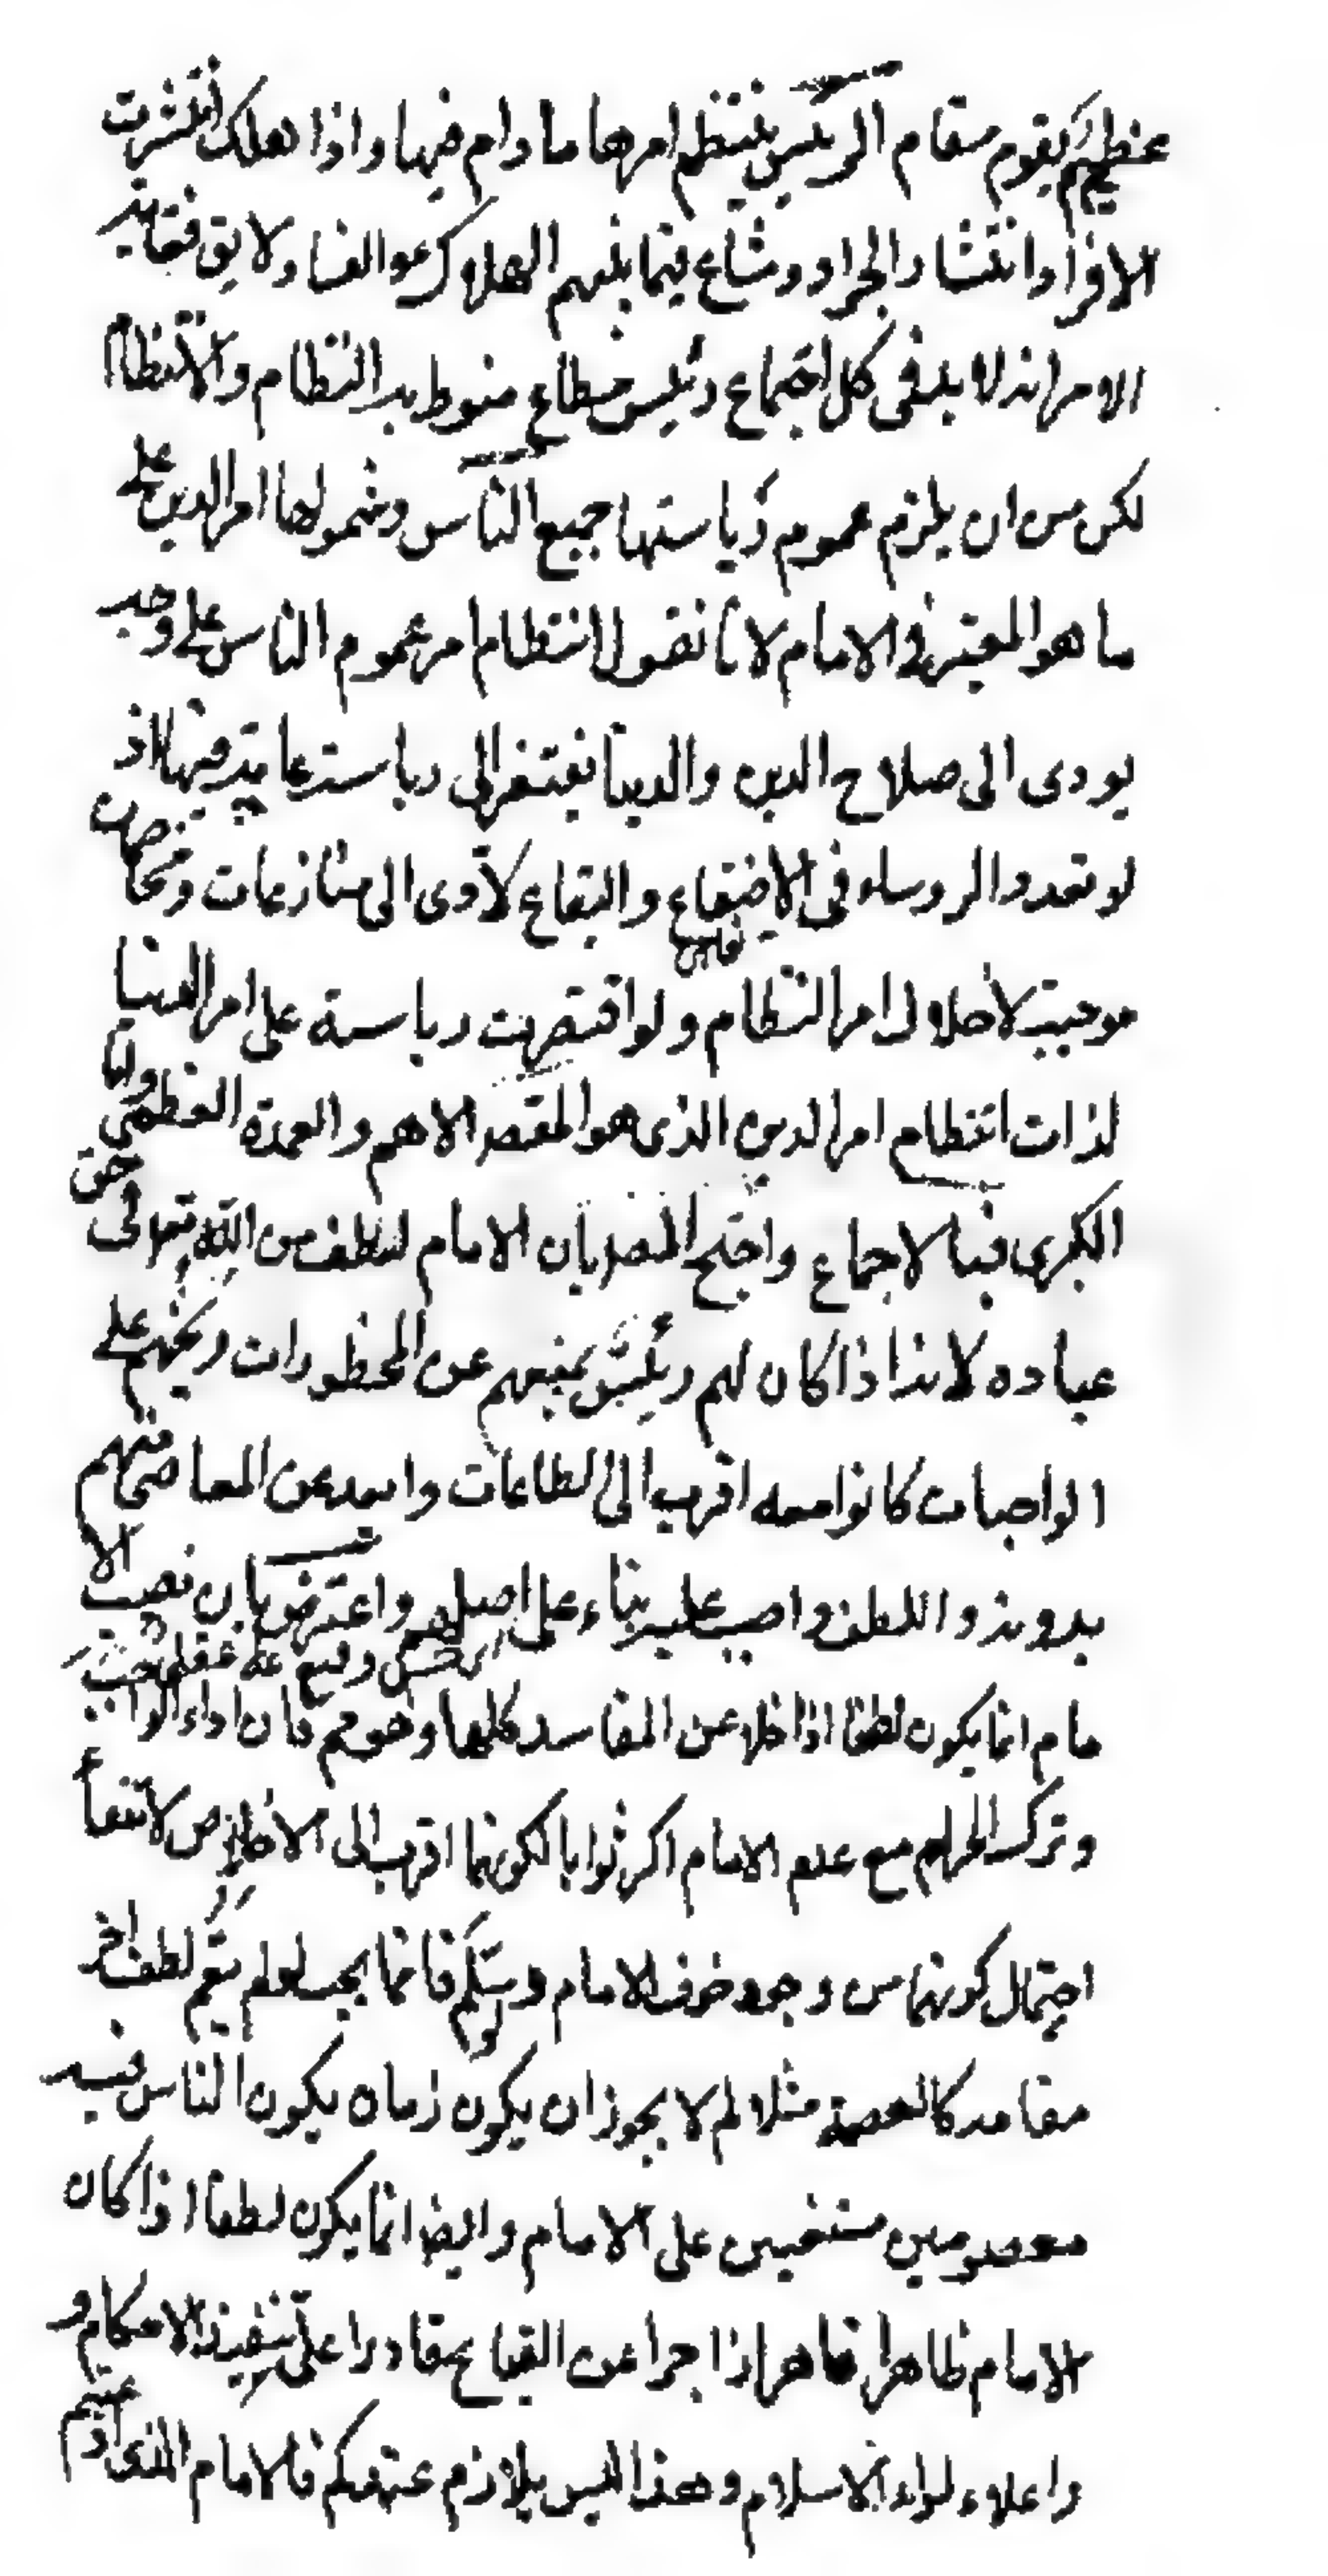 عظيم يقوم مقام الرئيس ينتظم امرها ما دام فيها واذا هلك انتشرت
الافراد انتشار الجراد وشاع فيما بينهم الهلاك والفساد لا يق فغاية
الامر انه لا بد فى كل اجتماع رئيس مطاع منوط به النظام والانتظام
لكن من ان يلزم عموم رياستها جميع الناس وشمولها امر الدين على
ما هو المعتبر فى الامام لانا نقول انتظام امر عموم الناس على وجه
يودى الى صلاح الدين والدنيا يفتقر الى رياسة عامة فيهما اذ
لو تعدد الروساء فى الاصقاع والبقاع لادى الى منازعات ومخاصمات
موجبة لاختلال امر النظام ولو اقتصرت رياسة على امر الدنيا
لفات انتظام امر الدين الذى هو المقصد الاهم والعمدة العظمى ولنا
الكبرى فبالاجماع واحتج النصر بان الامام لطف من الله تعالى حق
عباده لانه اذا كان لهم رئيس يمنعهم عن المحظورات ويحثهم على
الواجبات كانوا معه اقرب الى الطاعات وابعد عن المعاصى منهم
بدونه واللطف واجب عليه بناء على اصلهم واعترض بان نصب الا
مام انما يكون لطفا اذا خلا عن المفاسد كلها وهو مم فان اداء الواجب
وترك الحرام مع عدم الامام اكثر ثوابا لكونهما اقرب الى الاخلاص لانتفاء
احتمال كونهما من وجود خوف الامام ولو سلم فانما يجب لو لم يقم لطف اخر
مقامه كالعصمة مثلا لم لا يجوز ان يكون زمان يكون الناس فيه
معصومين مستغنيين على الامام وايضا انما يكون لطفا اذا كان
الامام ظاهرا قاهرا زاجرا عن القبايح قادرا على تنفيذ الاحكام و
اعلاء لواء الاسلام وهذا ليس بلازم عندكم فالامام الذى ادعيتم